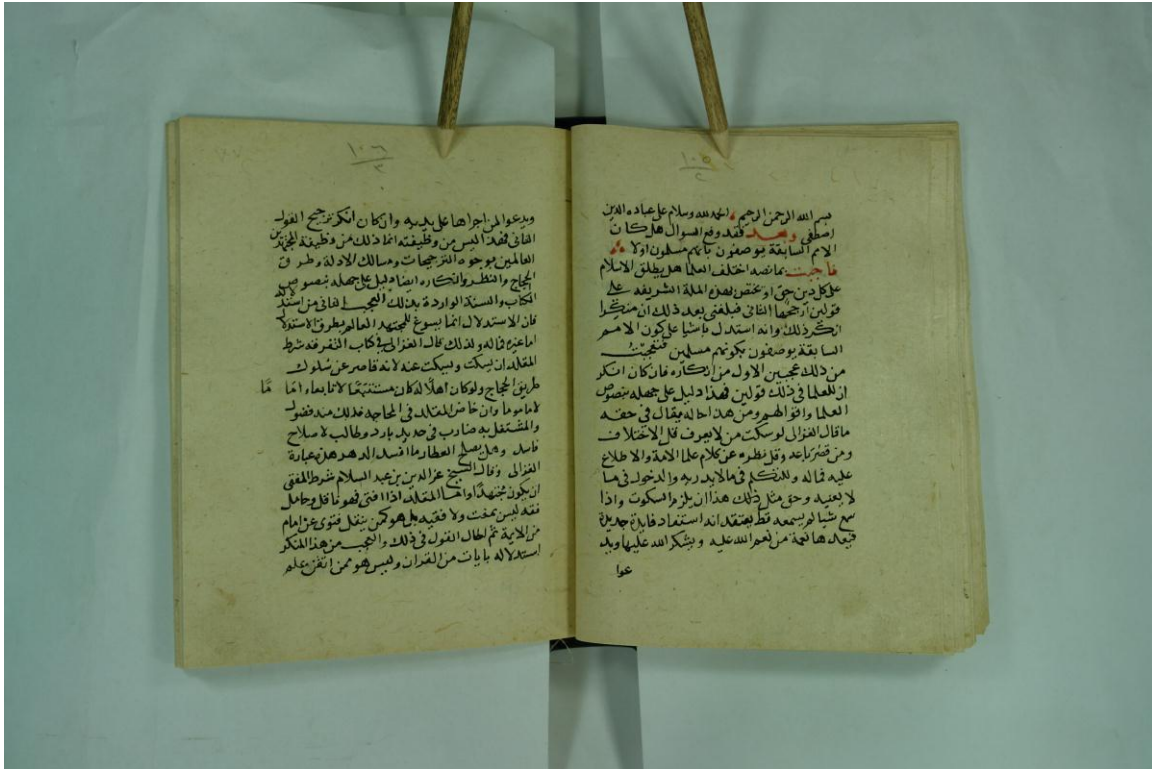 ١٠٥
٢
بسم الله الرحمن الرحيم الحمد لله وسلام على عباده الذين
اصطفى وبعد فقد وقع السوال هل كان
الامم السابقة يوصفون بانهم مسلمون اولا
فاجبت بمانصه اختلف العلما هل يطلق الاسلام
على كل دين حق او يختص بهذه الملة الشريفه على
قولين ارجحهما الثانى فبلغنى بعد ذلك ان منكرا
انكر ذلك وانه استدل باشيا على كون الامم
السابقة يوصفون بكونهم مسلمين فتعجبت
من ذلك عجبين الاول من انكاره فان كان انكر
ان للعلما فى ذلك قولين فهذا دليل على جهله بنصوص
العلما واقوالهم ومن هذا حاله يقال فى حقه
ما قال الغزالى لو سكت من لا يعرف قل الاختلاف
ومن قصر باعه وقل نظره عن كلام علما الامة والاطلاع
عليه فماله وللتكلم فى مالا يدريه والدخول فى ما
لا يعنيه وحق مثل ذلك هذا ان يلزم السكوت واذا
سمع شيا لم يسمعه قط يعتقد انه استفاد فايدة جديدة
فيعدها نعمة من نعم الله عليه ويشكر الله عليها ويد
عوا
١٠٦
٢
ويدعوا لمن اجراها على يديه وان كان انكر ترجيح القول
الثانى فهذا ليس من وظيفته انما ذلك من وظيفة المجتهدين
العالمين بوجوه الترجيحات ومسالك الادلة وطرق
الحجاج والنظر وانكاره ايضا دليل على جهله بنصوص
الكتاب والسنة الواردة بذلك العجب الثانى من استدلاله
فان الاستدلال انما يسوغ للمجتهد العالم بطرق الاستدلال
اما غيره فماله ولذلك قال الغزالى فى كتاب التفرقة شرط
المقلد ان يسكت ويسكت عنه لانه قاصر عن سلوك
طريق الحجاج ولو كان اهلا له كان مستتبعا لا تابعا واماما
لا ماموما وان خاض المقلد فى المحاجه فذلك منه فضول
والمشتغل به ضارب فى حديد بارد وطالب لاصلاح
فاسد وهل يصلح العطار ما افسد الدهر هذه عبارة
الغزالى وقال الشيخ عز الدين بن عبد السلام شرط المفتى
ان يكون مجتهدا واما المقلد اذا افتى فهو ناقل وحامل
فقه ليس بمفت ولا فقيه بل هو كمن ينقل فتوى عن امام
من الايمة ثم اطال القول فى ذلك والعجب من هذا المنكر
استدلاله بايات من القران وليس هو ممن اتقن علم